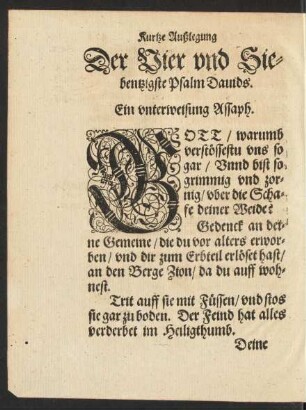 Kurtze Außlegung
Der Vier vnd Sie-
bentzigste Psalm Dauids.
Ein vnterweisung Assaph.
GOTT / warumb
verstössestu vns so
gar / Vnnd bist so
grimmig vnd zor-
nig / vber die Scha-
fe deiner Weide?
Gedenck an dei-
ne Gemeine / die du vor alters erwor-
ben / vnd dir zum Erbteil erlöset hast /
an den Berge Zion / da du auff woh-
nest.
Trit auff sie mit Füssen / vnd stos
sie gar zu boden. Der Feind hat alles
verderbet im Heiligthumb.
Deine